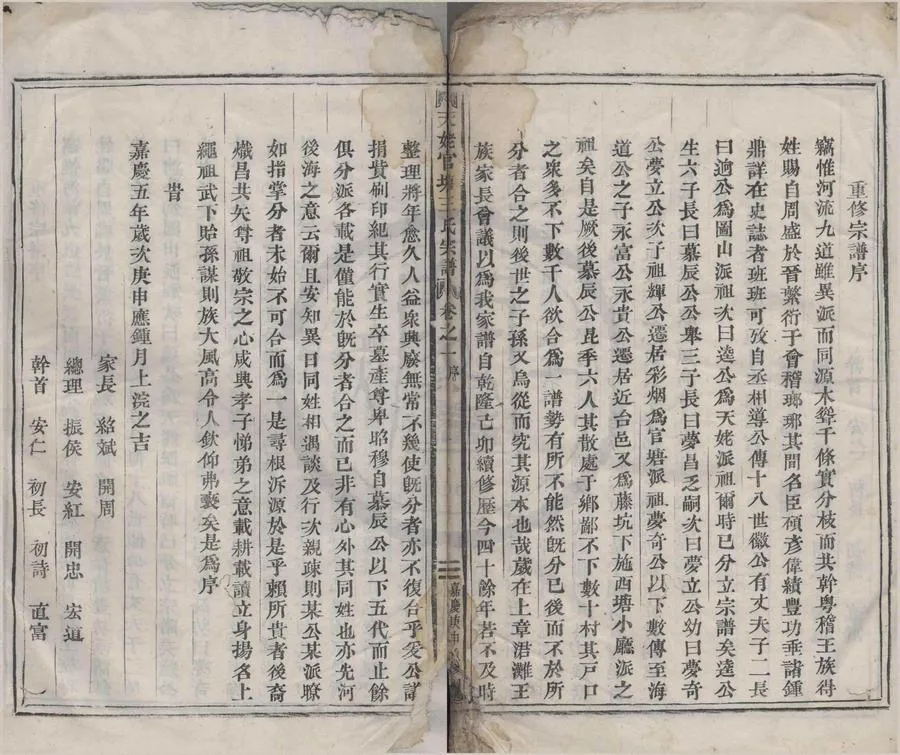 重修宗譜序
竊惟河流九道雖異派而同源木聳千條實分枝而共幹粤稽王族得
姓賜自周盛於晉繁衍于會稽瑯琊其間名臣碩彥偉績豐功垂諸鍾
鼎詳在史誌者班班可攷自丞相導公傳十八世徽公有丈夫子二長
曰逈公爲圖山派祖次曰逵公爲天姥派祖爾時已分立宗譜矣逵公
生六子長曰慕辰公公舉三子長曰夢昌乏嗣次曰夢立公幼曰夢奇
公夢立公次子祖輝公遷居彩烟爲官塘派祖夢奇公以下數傳至海
道公之子永富公永貴公遷居近台邑又爲藤坑下施西塘小廳派之
祖矣自是厥後慕辰公昆季六人其散處于鄉鄙不下數十村其戸口
之衆多不下數千人欲合爲一譜勢有所不能然旣分已後而不於所
分者合之則後世之子孫又烏從而究其源本也哉葳在上章涒灘王
族家長會議以爲我家譜自乾隆己卯續修歷今四十餘年若不及時
天姥官塘王氏宗譜 卷之一 序 二 嘉慶庚申
整理將年愈久人益衆興廢無常不幾使旣分者亦不復合乎爰公諸
捐貲刷印紀其行實生卒墓產尊卑昭穆自慕辰公以下五代而止餘
俱分派各載是僅能於旣分者合之而已非有心外其同姓也亦先河
後海之意云爾且安知異日同姓相遇談及行次親疎則某公某派瞭
如指掌分者未始不可合而爲一是尋根泝源於是乎賴所貴者後裔
熾昌共矢尊祖敬宗之心咸興孝子悌弟之意載耕載讀立身揚名上
繩祖武下貽孫謀則族大風高令人欽仰弗褻矣是爲序
旹
嘉慶五年歲次庚申應鍾月上浣之吉
家長 紹斌 開周
總理 振侯 安紅 開忠 宏道
幹首 安仁 初長 初詩 直富